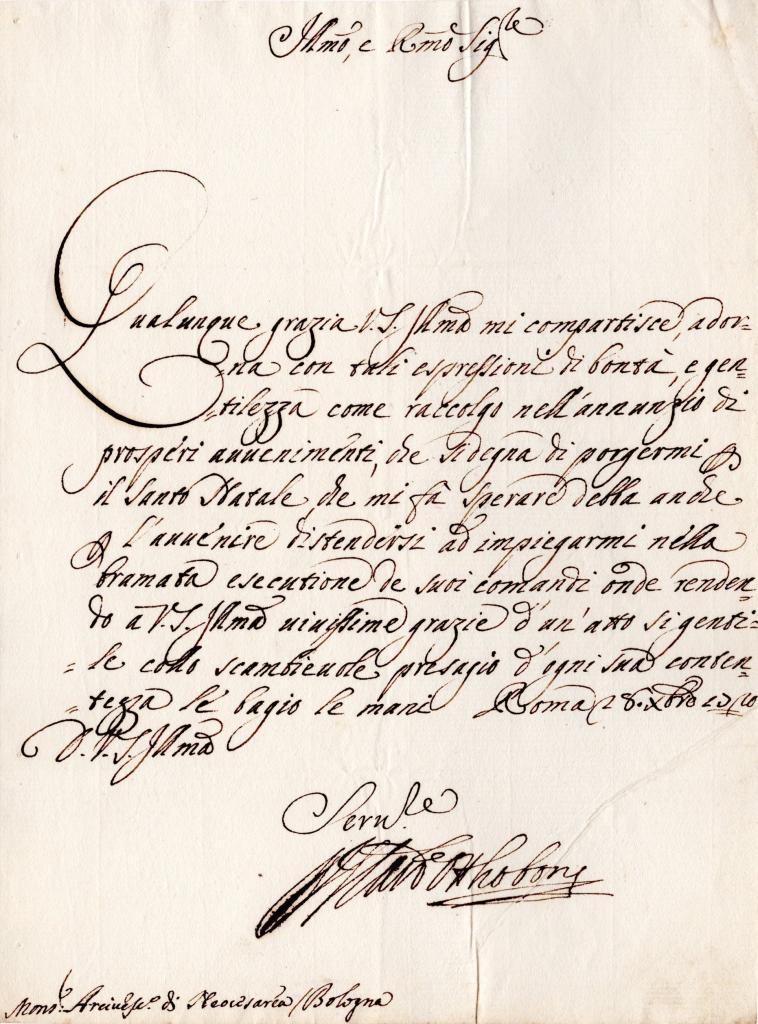 Illmo, e Rmo Sigre
Qualunque grazia V.S. Illma mi compartisce, ador=
=na con tali espressioni di bontà, e gen=
=tilezza come raccolgo nell'annunzio di
prosperi auuenimenti, che si degna di porgermi
il Santo Natale, che mi fà sperare della anche
l'auuenire distendersi ad impiegarmi nella
bramata esecutione de suoi comandi onde renden=
do a V.S. Illma viuissime grazie d'un'atto si genti=
=le collo scambieuole presagio d'ogni sua conten=
=tezza le bagio le mani Roma 28. Xbro 1710
D. V.S. Illma
Seru.re
Card Otthoboni
Mons.r Arciuesc.o di Neocesarea / Bologna